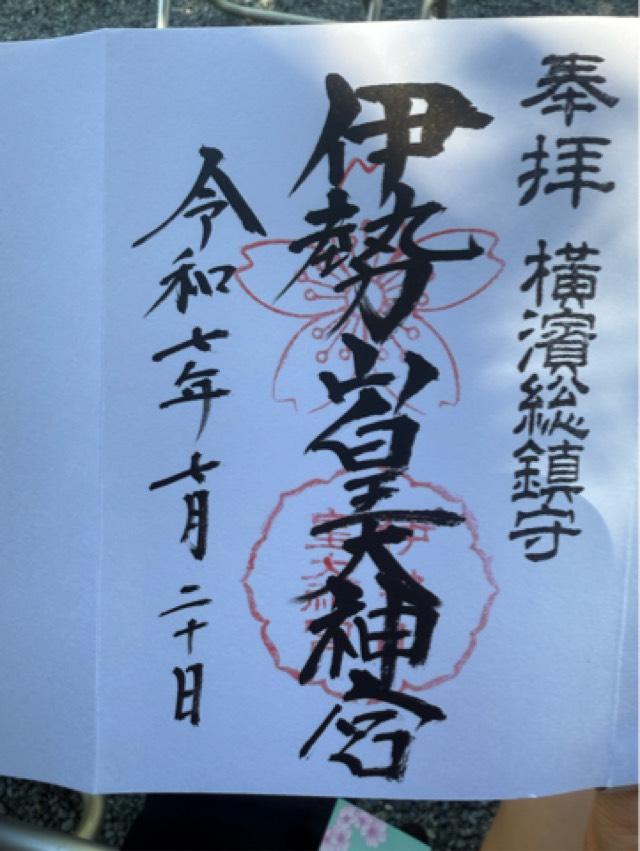 奉拝 横濱総鎮守
伊勢山皇大神宮
令和七年七月二十日